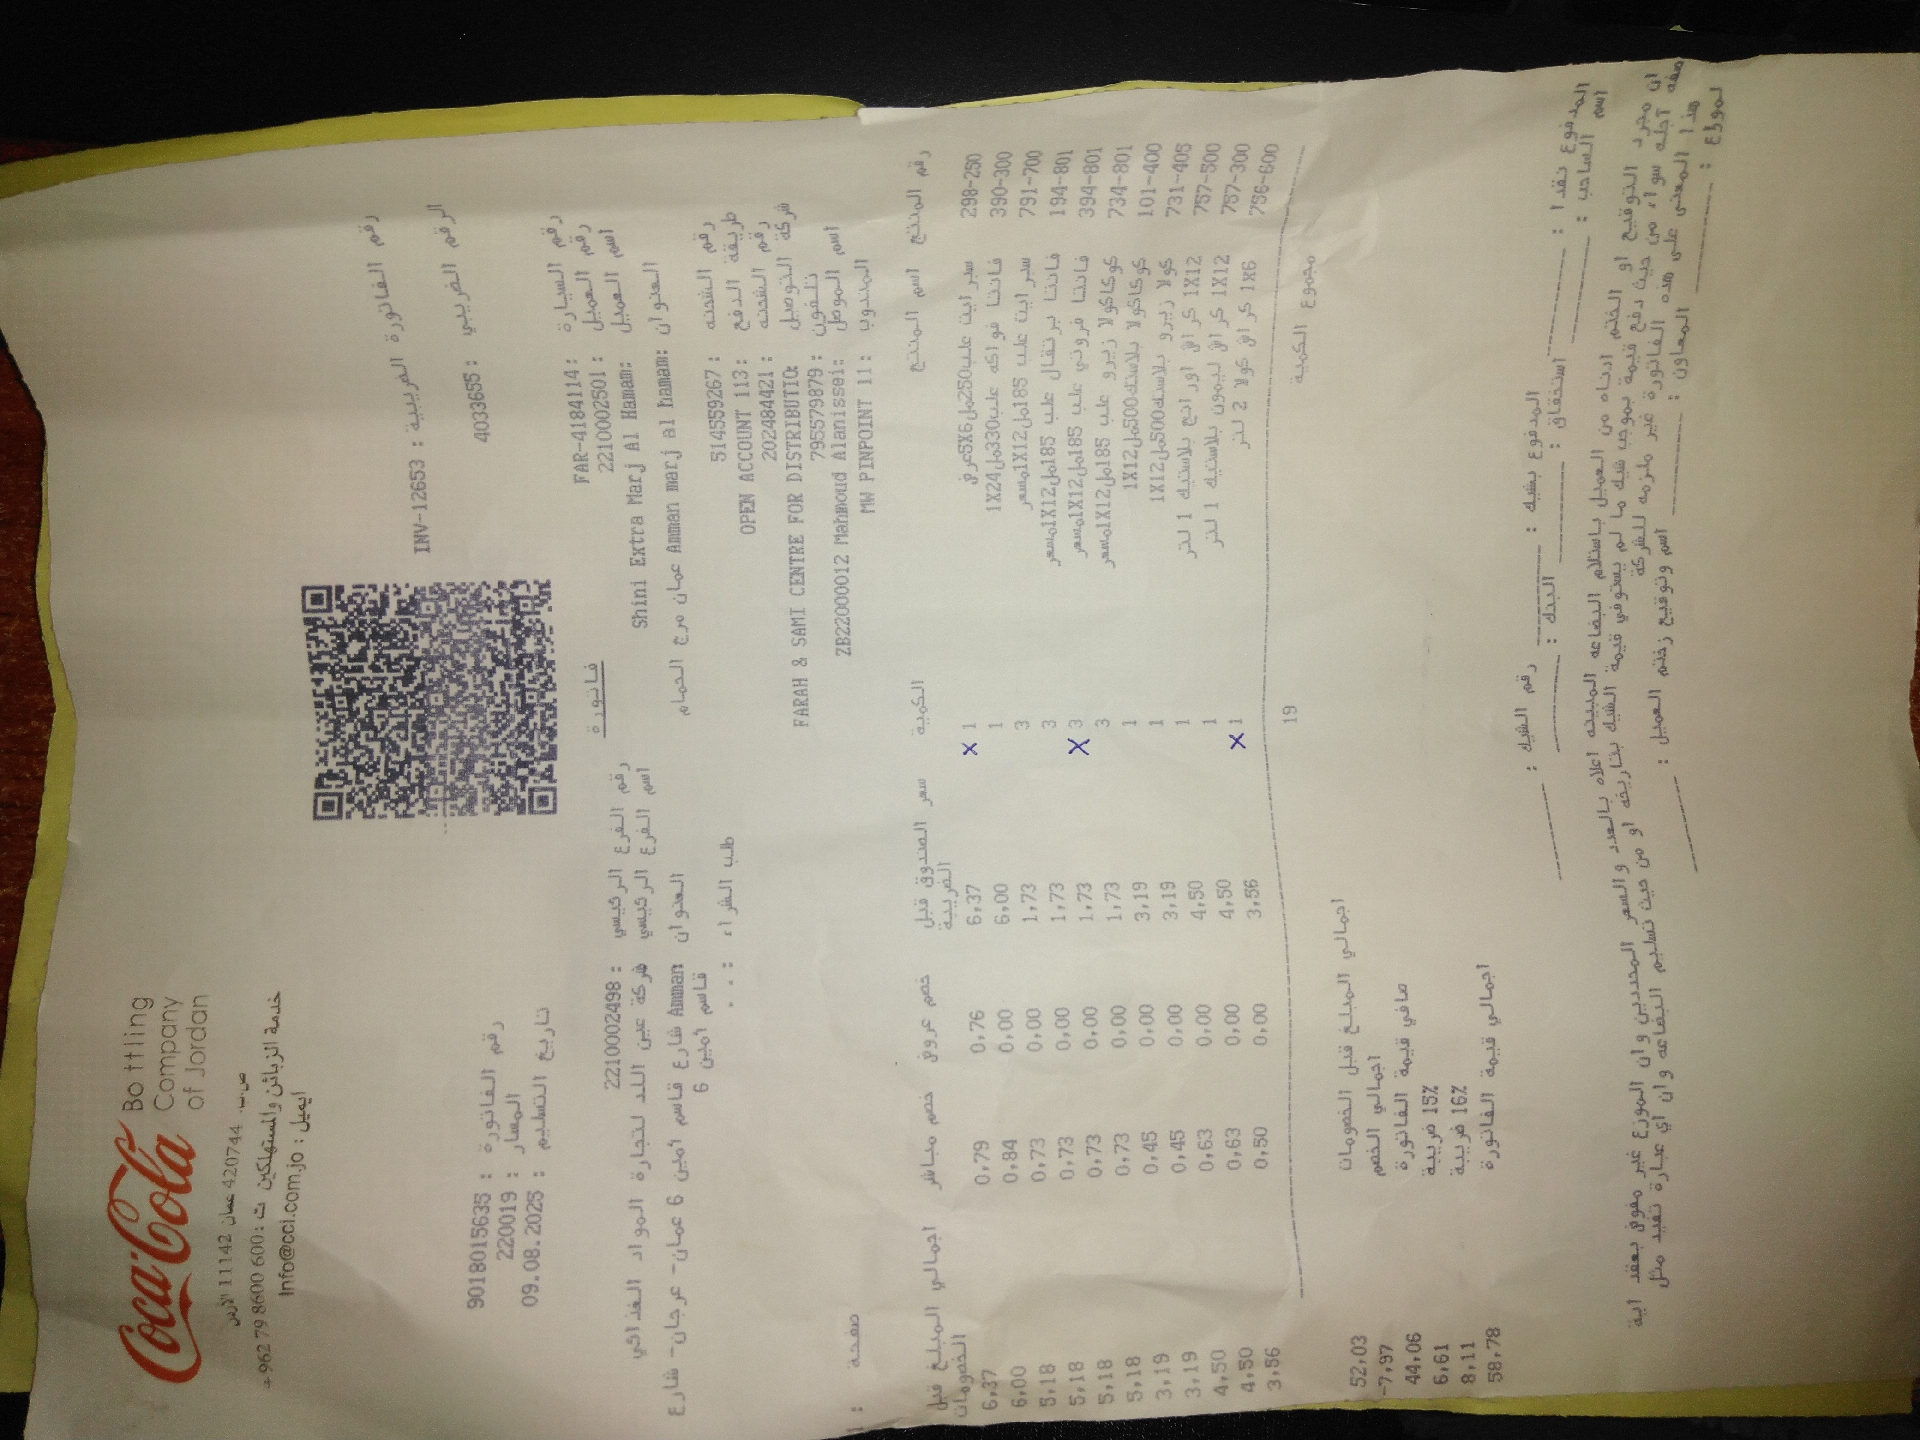 Coca-Cola Bottling Company of Jordan
ص.ب. 420744 عمان 11142 الأردن
خدمة الزبائن والمستهلكين ت: 600 8600 79 962+
ايميل: Info@cci.com.jo
رقم الفاتورة الضريبية : INV-12653
الرقم الضريبي : 4033655
رقم الفاتورة : 9018015635
المسار : 220019
تاريخ التسليم : 09.08.2025
فاتورة
رقم السيارة : FAR-4184114
رقم العميل : 2210002501
اسم العميل : Shini Extra Marj Al Hamam
العنوان : Amman marj al hamam عمان مرج الحمام
رقم الفرع الرئيسي : 2210002498
اسم الفرع الرئيسي شركة عين اللد لتجارة المواد الغذائي
العنوان Amman شارع قاسم أمين 6 عمان- عرجان- شارع
قاسم أمين 6
طلب الشراء : . .
رقم الشحنه : 514559267
طريقة الدفع : OPEN ACCOUNT 113
رقم الشحنه : 202484421
شركة التوصيل : FARAH & SAMI CENTRE FOR DISTRIBUTIO
تلفون : 795579879
اسم الموصل : ZB22000012 Mahmoud Alanissei
المندوب : MW PINPOINT 11
صفحة : 1
رقم المنتج اسم المنتج الكمية سعر الصندوق قبل الضريبة خصم عروض خصم مباشر اجمالي المبلغ قبل الخصومات
298-250 سبرايت علب250مل5X6عرض X 1 6,37 0,76 0,79 6,37
390-300 فانتا فواكه علب330مل1X24 1 6,00 0,00 0,84 6,00
791-700 سبرايت علب 185مل1X12مسعر 3 1,73 0,00 0,73 5,18
194-801 فانتا برتقال علب 185مل1X12مسعر 3 1,73 0,00 0,73 5,18
394-801 فانتا فروتي علب 185مل1X12مسعر X 3 1,73 0,00 0,73 5,18
734-801 كوكاكولا زيرو علب 185مل1X12مسعر 3 1,73 0,00 0,73 5,18
101-400 كوكاكولا بلاستك500مل1X12 1 3,19 0,00 0,45 3,19
731-405 كولا زيرو بلاستك500مل1X12 1 3,19 0,00 0,45 3,19
757-500 كراش اورانج بلاستيك 1 لتر 1X12 1 4,50 0,00 0,63 4,50
757-300 كراش ليمون بلاستيك 1 لتر 1X12 X 1 4,50 0,00 0,63 4,50
756-600 كراش كولا 2 لتر 1X6 1 3,56 0,00 0,50 3,56
مجموع الكمية 19
اجمالي المبلغ قبل الخصومات 52,03
اجمالي الخصم -7,97
صافي قيمة الفاتورة 44,06
15% ضريبة 6,61
16% ضريبة 8,11
اجمالي قيمة الفاتورة 58,78
المدفوع نقدا : المدفوع بشيك : رقم الشيك :
اسم الساحب : استحقاق : البنك :
ان مجرد التوقيع او الختم ادناه من العميل باستلام البضاعه المبينه اعلاه بالعدد والسعر المحددين وان الموزع غير مفوض بعقد اية
صفة آجله سواء من حيث دفع قيمة بموجب شيك ما لم يستوفي قيمة الشيك بتاريخه او من حيث تسليم البضاعه وان أي عبارة تفيد مثل
هذا المعنى على هذه الفاتورة غير ملزمه للشركة
لموزع : المعاون : اسم وتوقيع رختم العميل :